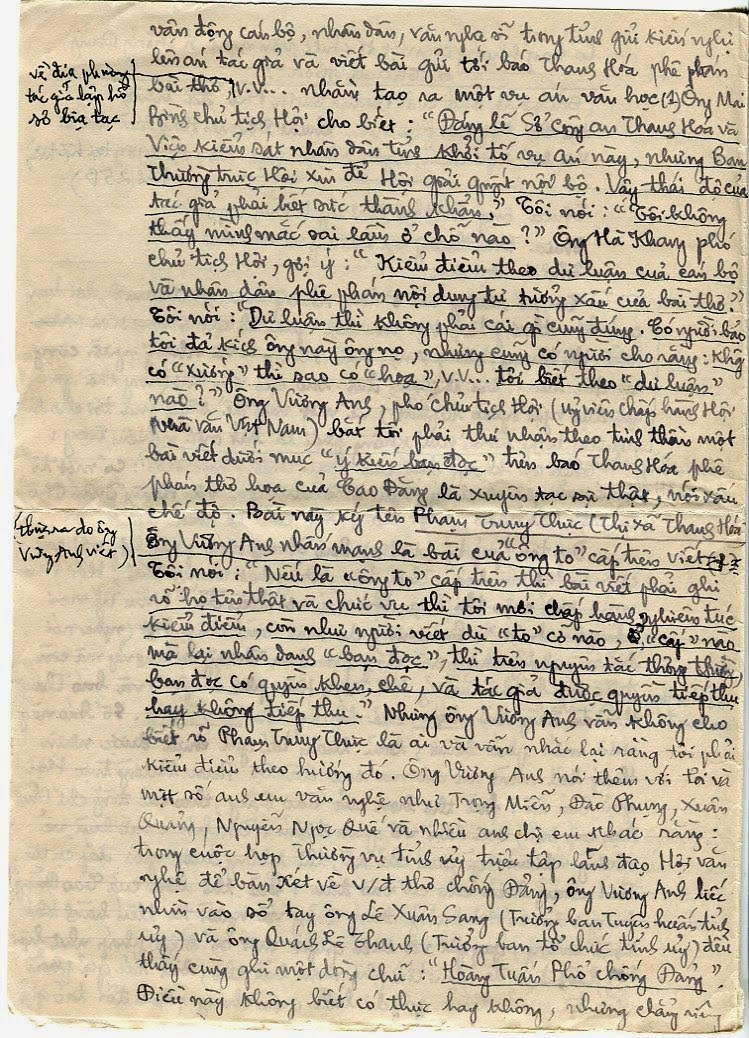 vận động cán bộ, nhân dân, văn nghệ sĩ trong tỉnh gửi kiến nghị
lên án tác giả và viết bài gửi tới báo Thanh Hóa phê phán
bài thơ, v.v... nhằm tạo ra một vụ án văn học (1) Ông Mai
Bình chủ tịch Hội cho biết: "Đáng lẽ Sở Công an Thanh Hóa và
Viện kiểm sát nhân dân tỉnh khởi tố vụ án này, nhưng Ban
thường trực Hội xin để Hội giải quyết nội bộ. Vậy thái độ của
tác giả phải hết sức thành khẩn." Tôi nói: "Tôi không
thấy mình mắc sai lầm ở chỗ nào?" Ông Hà Khang phó
chủ tịch Hội, gợi ý: "Kiểm điểm theo dư luận của cán bộ
và nhân dân phê phán nội dung tư tưởng xấu của bài thơ."
Tôi nói: "Dư luận thì không phải cái gì cũng đúng. Có người bảo
tôi đả kích ông này ông nọ, nhưng cũng có người cho rằng: không
có "xướng" thì sao có "họa", v.v... tôi biết theo "dư luận"
nào?" Ông Vương Anh, phó chủ tịch Hội (ủy viên chấp hành Hội
Nhà văn Việt Nam) bắt tôi phải thú nhận theo tinh thần một
bài viết dưới mục "ý kiến bạn đọc" trên báo Thanh Hóa phê
phán thơ họa của Tao Đàng là xuyên tạc sự thật, nói xấu
chế độ. Bài này ký tên Phạm Trung Thực (Thị xã Thanh Hóa
Ông Vương Anh nhấn mạnh là bài của "ông to" cấp trên viết
Tôi nói: "Nếu là "ông to" cấp trên thì bài viết phải ghi
rõ họ tên thật và chức vụ thì tôi mới chấp hành, nghiêm túc
kiểm điểm, còn như người viết dù "to" cỡ nào, ở "cấp" nào
mà lại nhân danh "bạn đọc", thì trên nguyên tắc thông thường,
bạn đọc có quyền khen, chê, và tác giả được quyền tiếp thu
hay không tiếp thu." Nhưng ông Vương Anh vẫn không cho
biết rõ Phạm Trung Thực là ai và vẫn nhắc lại rằng tôi phải
kiểm điểm theo hướng đó. Ông Vương Anh nói thêm với tôi và
một số anh em văn nghệ như Trọng Miễn, Đào Phụng, Xuân
Quảng, Nguyễn Ngọc Quế và nhiều anh chị em khác rằng:
trong cuộc họp Thường vụ tỉnh ủy triệu tập lãnh đạo Hội văn
nghệ để bàn xét về v/đ thơ chống Đảng, ông Vương Anh liếc
nhìn vào sổ tay ông Lê Xuân Sang (Trưởng ban Tuyên huấn tỉnh
ủy) và ông Quách Lê Thanh (Trưởng ban tổ chức tỉnh ủy) đều
thấy cùng ghi một dòng chữ: "Hoàng Tuấn Phổ chống Đảng".
Điều này không biết có thực hay không, nhưng chẳng riêng
về địa phương
tác giả lập hồ
sơ bịa tạc
(thực ra do ông
Vương Anh viết)